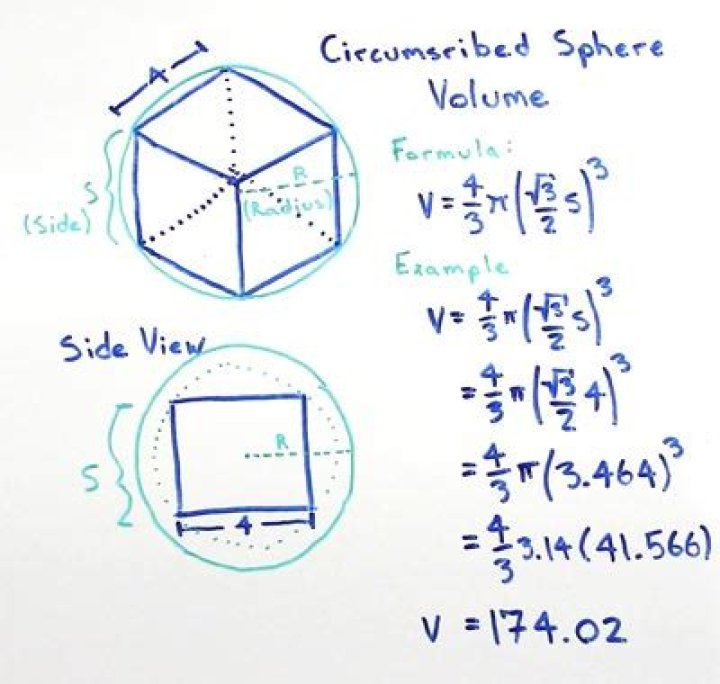 Circumsribed Sphere
Volume
A
S
(Side)
R
(Radius)
Formula:
V = 4/3 π (√3/2 s)^3
Example
V = 4/3 π (√3/2 s)^3
= 4/3 π (√3/2 4)^3
= 4/3 π (3.464)^3
= 4/3 3.14 (41.566)
V = 174.02
Side View
S
R
4